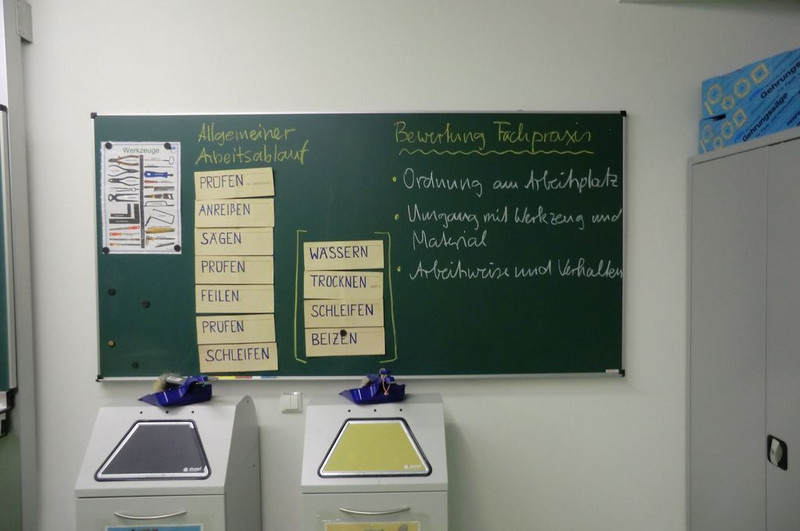 Werkzeuge
Allgemeiner
Arbeitsablauf
PRÜFEN
ANREIßEN
SÄGEN
PRÜFEN
FEILEN
PRÜFEN
SCHLEIFEN
WÄSSERN
TROCKNEN
SCHLEIFEN
BEIZEN
Bewertung Fachpraxis
• Ordnung am Arbeitsplatz
• Umgang mit Werkzeug und
Material
• Arbeitsweise und Verhalten
Gehrungssäge
Gehrungssäge